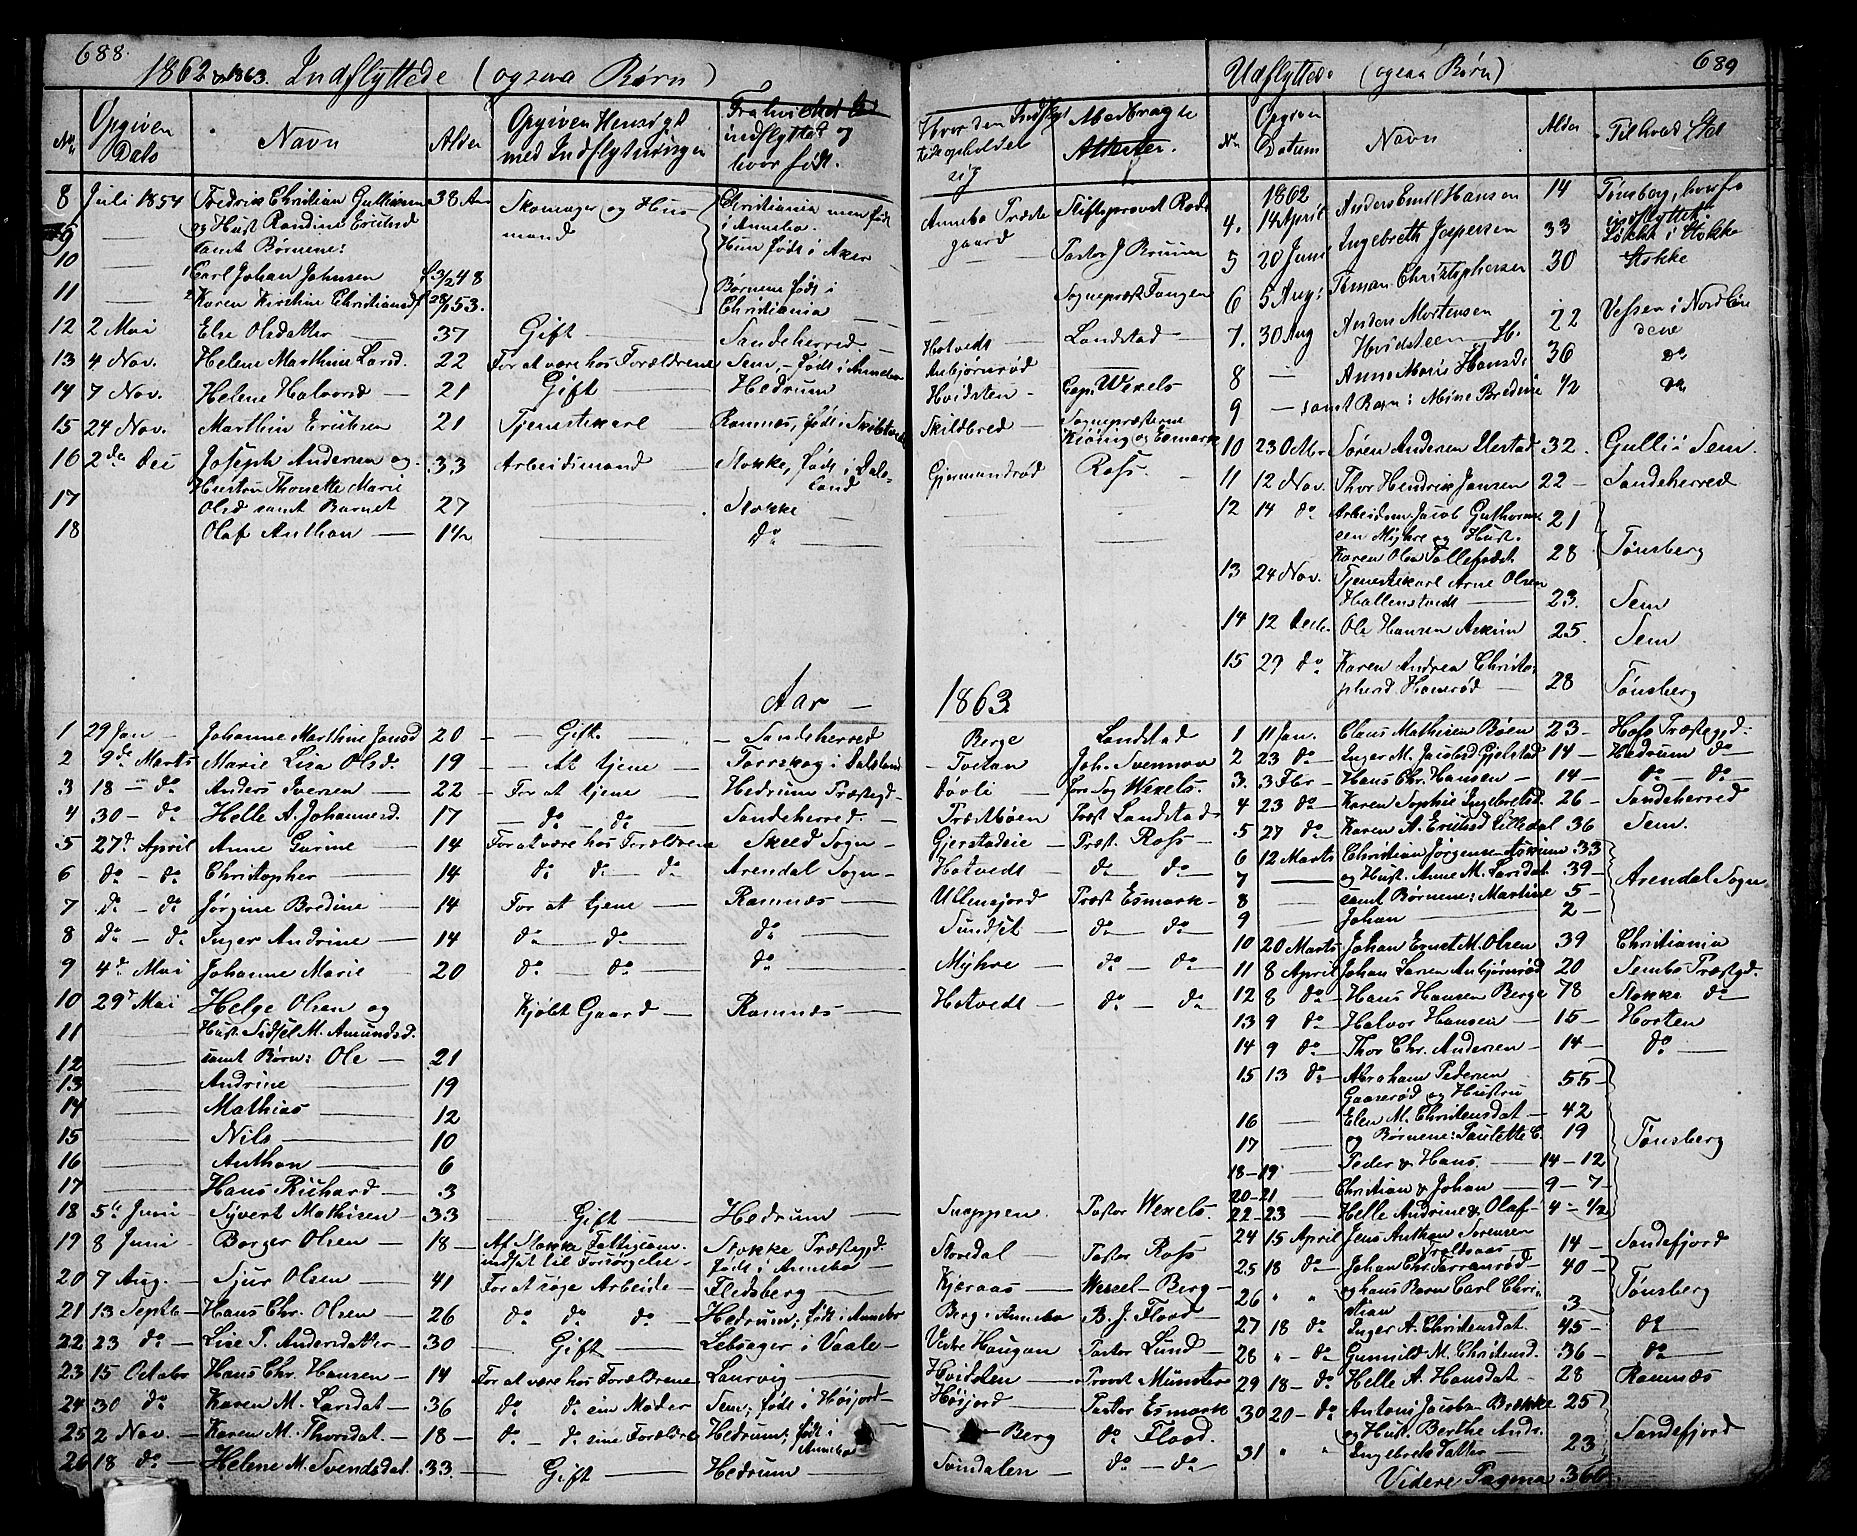 688.
1862 & 1863. Indflyttede (ogsaa Børn)
No. Opgiven Dato Navn Alder Opgiven Hensigt med Indflytningen indflyttet og hvor født.
8 Juli 1854 Fredrik Christian Gulliksen 38 Aar Skomager og Huusmand Christiania men født i Annebo.
9 — og Hust Randine Ericksd Hun født i Aker
10 — samt Børnene:
1 Carl Johan Johnsen f 3/2 48 Børnene født i
11 — 2 Karen Kirstine Christiansd f 28/1 53. Christiania
12 2 Mai Else Olsdatter 37 Gift Sandeherred
13 4 Nov. Helene Marthine Larsd. 22 For at være hos Forældrene Sem, født i Annebo
14 7 Nov. Helene Halvorsd 21 Gift Hedrum
15 24 Nov. Marthin Ericksen 21 Tjenestekarl Ramnæs, født i
16 2de Dec Joseph Andersen og 33 Arbeidsmand Stokke, født i Dalsland
17 Hustru Thonette Marie
Olsd samt Barnet 27 Stokke
18 Olaf Anthon 1 1/2 do
Aar
1 29 Jan Johanne Marthine Jonsd 20 Gift Sandeherred
2 9de Marts Marie Lisa Olsd. 19 At tjene Torrskog i Dalsland
3 18 — do Anders Iversen 22 For at tjene Hedrum Præstegd
4 30 — do Helle A. Johannesd. 17 do — do Sandeherred
5 27d April Anne Gurine 14 For at være hos Forældrene Skeed Sogn
6 do — do Christopher 14 do do do Arendal Sogn
7 do — do Jørgine Bredine 14 For at tjene Ramnæs
8 do — do Inger Andrine 14 do — do do
9 4de Mai Johanne Marie 20 do — do do
10 29d Mai Helge Olsen og Kjøbt Gaard Ramnæs
11 Hust. Sidsel M. Amundsd.
12 samt Børn: Ole 21
13 Andrine 19
14 Mathias 12
15 Nils 10
16 Anthon 6
17 Hans Richard 3
18 5te Juni Syvert Mathisen 33 Gift Hedrum
19 8 Juni Borger Olsen 18 Af Stokke Fattigcom. Stokke Præstegd.
indsat til Forsørgelse født i Annebo
20 7 Aug. Sjur Olsen 41 For at søge Arbeide Flesberg
21 13 Septb Hans Chr. Olsen 26 do do do Hedrum, født i Annebo
22 23 do Lise P. Andersdatter 30 Gift Lebsager i Vaale
23 15 Octobr Hans Chr. Hansen 14 For at være hos Forældrene Laurvig
24 30 do Karen M. Larsdat 36 do do sin Moder Sem; født i Høijord
25 2 Nov. Karen M. Thorsdat 18 do do sine Forældre Hedrum, født i Annebo
26 18 do Helene M. Svendsdat. 33. Gift Hedrum
689
Udflyttede (ogsaa Børn)
Hvor den Indflyttede opholder sig Medbragte Attester. No. Opgiven Datum Navn Alder Til hvad Sted
Annebo Præstegaard Stiftsprovst Rode
Pastor J Bruun
Sognepræst Fangen
Hotvedt Landstad
Anbjørnrød
Hvidsten Cap. Wexels
Skildbred Sognepræsterne Kiønig og Esmark
Gjermundrød Ross.
1862
4. 14 April Anders Emil Hansen 14 Tønsberg, hvorfra indflyttet.
5 20 Juni Ingebreth Jespersen 33 Løkke i Stokke
6 5 Aug: Timan Christophersen 30 Stokke
7. 30 Aug Anders Mortensen Hvidsteen 22 Vefsen i Nordlandene
8 — Anne Marie Hansd: 36 do
9 — samt Barn: Mine Bredine 1/2 do
10 23 Obr. Søren Andersen Ilestad 32. Gulli i Sem.
11 12 Nov. Thor Hendrik Jansen 22 Sandeherred
12 14 do Arbeidsm. Jacob Guthormsen Myhre og Hust. 21
Karen Olea Tollefsdat 28 Tønsberg
13 24 Nov. Tjenestekarl Arne Olsen Hallenstvedt 23. Sem
14 12 Decbr. Ole Hansen Askim 25. Sem
15 29 do Karen Andrea Christophersd Hanerød 28 Tønsberg
1863
Berge Landstad 1 11 Jan. Claus Mathisen Bøen 23 Hofs Præstegd:
Tvetan Joh. Svennon 2 23 do Inger M. Jacobsd Gjelstad 14 Hedrum do
Døvli Wexels 3. 3 Fbr Hans Chr. Hansen 14 do — do
Præstbøen Præst Landstad 4 23 do Karen Sophie Ingebretsd. 26 Sandeherred
Gjerstadeie Præst. Ross 5 27 do Karen A. Ericksd Lilledal 36 Sem.
Hotvedt do do 6 12 Marts Christian Jørgensen Askim 33
7 og Hust. Anne M. Larsdat 39 Arendal Sogn
Ullensjord Præst Esmark 8 samt Børnene: Martine 5
Sundset do do 9 Johan 2
10 20 Marts Johan Ernst M. Olsen 39 Christiania
Myhre do do 11 8 April Johan Larsen Anbjørnrød 20 Sembs Præstgd.
Hotvedt do do 12 8 do Hans Hansen Berge 78 Stokke do
13 9 do Halvor Hansen 15 Horten
14 9 do Thor Chr. Andersen 14 do
15 13 do Abraham Pedersen Gaaserød og Hustru 55
16 Elen M. Christensdat 42
17 og Børnene: Paulette C. 19 Tønsberg
18–19 Peder & Hans 14–12
20–21 Christian & Johan 9–7
Snappen. Pastor Wexels. 22–23 Helle Andrine & Olaf 4–1/2
Storedal Pastor Ross 24 15 April Jens Anthon Sorensen 14 Sandefjord
Kjæraas Wexel–Berg 25 18 do Johan Chr. Farranrød 40
26 " " og hans Barn Carl Christian 3 Tønsberg
Berg i Annebo B. J. Flood 27 18 do Inger A. Christensdat. 45 do
Vestre Haugan Pastor Lund 28 " do Gunnild M. Christensd. 36 do
Hvidsten Provst Münster 29 18 do Helle A. Hansdat 28 Ramnæs
Høijord Pastor Esmark 30 20 do Antoni Jacobsen Brække 25
Berg do Flood. og Hust. Berthe Andr. Sandefjord
Svindalen do do 31 " " Ingebretsdatter 23
Videre Pagina 366.